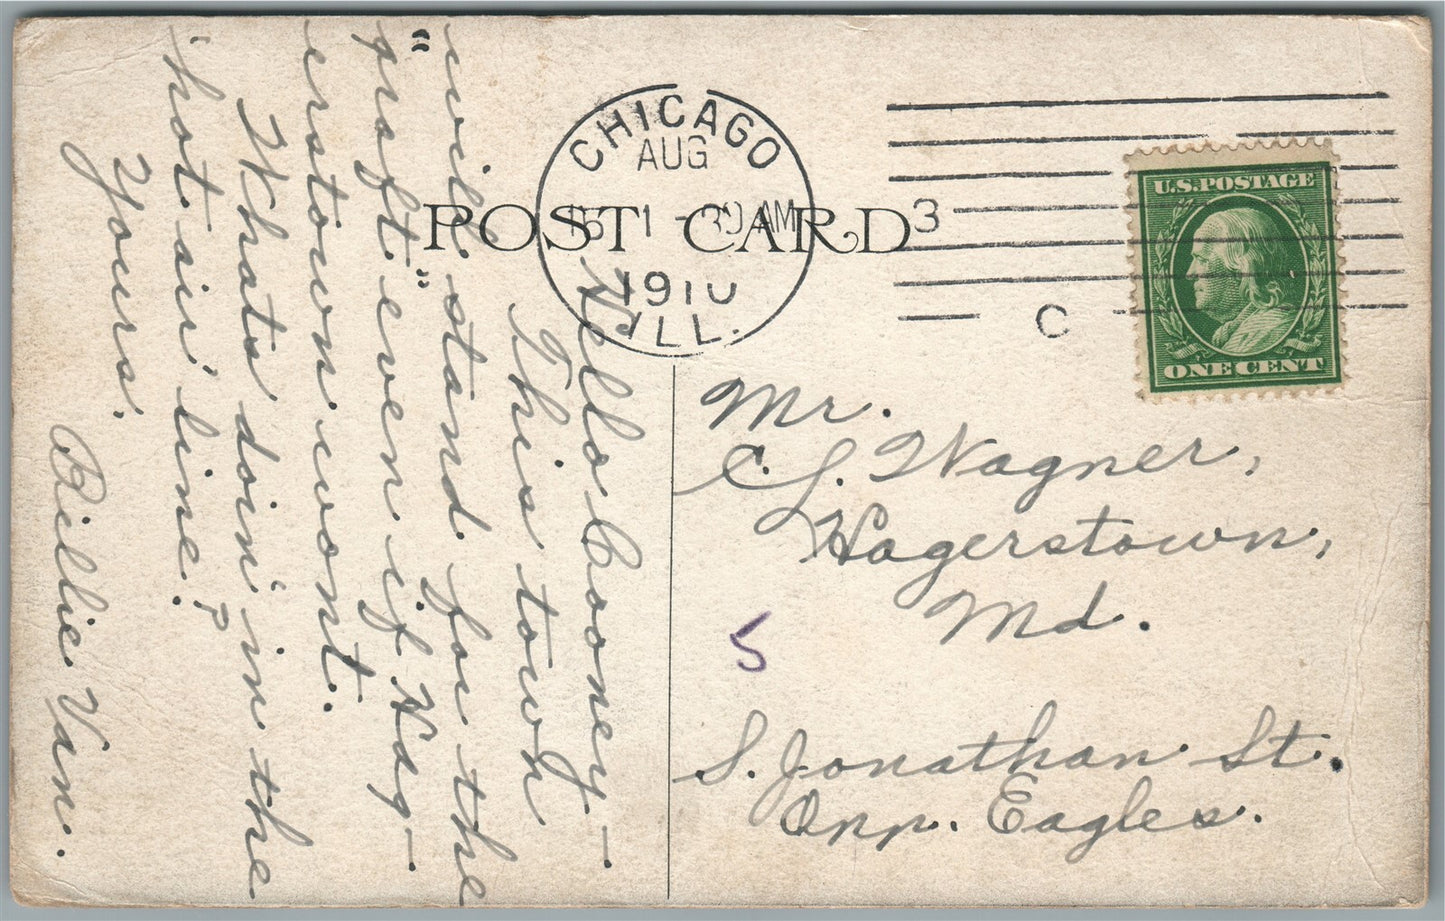 CHICAGO
AUG
15 1-30 AM
1910
ILL.
3
C
POST CARD
U.S. POSTAGE
ONE CENT
Mr.
C. L. Wagner,
Hagerstown,
Md.
5
S. Jonathan St.
Opp. Eagles.
Hello Cooney—
This town
will stand for the
"graft" even if Hag-
erstown wont.
Whats doin' in the
'hot air' line?
Yours,
Billie Van.